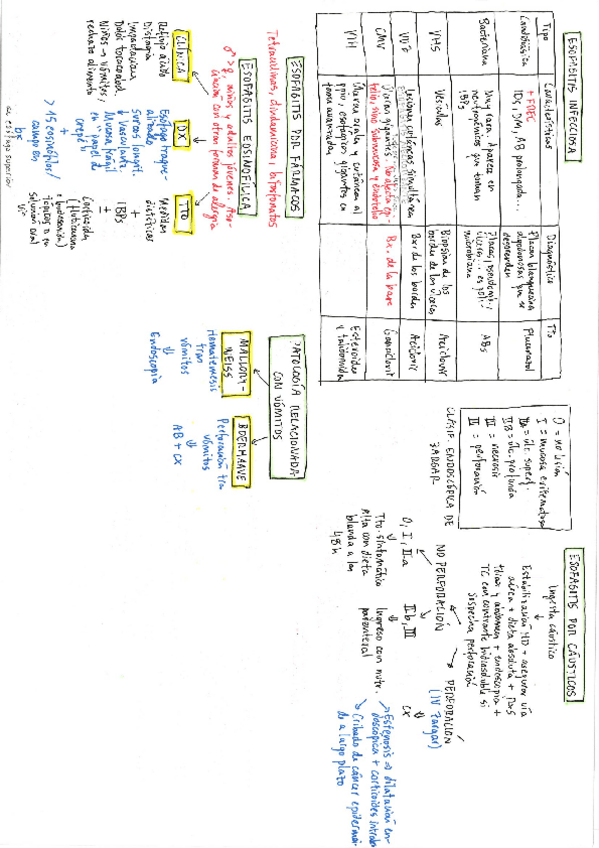 ESOFAGITIS INFECCIOSA
Tipo
Características
Diagnóstico
Tto
Candidiásica
+ FREC
IDs, DM, AB prolongada...
Placas blanquecinas
algodonosas que se
desprenden
Fluconazol
Bacteriana
Muy rara. Aparece en
neutropénicos que toman
IBPs
Placas, pseudomb,
úlceras... es poli-
microbiana
ABs
VHS
Vesículas
Biopsias de los
bordes de las úlceras
Aciclovir
Lesiones cutáneas simultáneas
Bx de los bordes
Aciclovir
CMV
Úlceras gigantes. No afecta epi-
telio, sino submucosa y endotelio
Bx. de la base
Ganciclovir
VIH
Úlceras orales y cutáneas al
ppio, esofágicas gigantes en
forma avanzada
Esteroides
y talidomida
ESOFAGITIS POR FÁRMACOS
Tetraciclinas, clindamicina, bifosfonatos
ESOFAGITIS EOSINOFÍLICA
♂ > ♀, niños y adultos jóvenes. Aso-
ciación con otras formas de alergia
CLÍNICA
Reflujo ácido
Disfagia
Impactaciones
Dolor torácico
Niños → vómitos,
rechazo alimento
DX
Esófago traque-
alizado
Surcos longit.
↓ vascularizac.
Mucosa frágil
en "papel de
crepé"
+
> 15 eosinófilos/
campo en
bx
de esófago superior
TTO
Medidas
dietéticas
+
IBPs
±
Corticoides
(fluticasona
o budesonida)
tópicos o en
solución oral
PATOLOGÍA RELACIONADA
CON VÓMITOS
MALLORY-
WEISS
Hematemesis
tras
vómitos
⇓
Endoscopia
BOERHAAVE
Perforación tras
vómitos
⇓
AB + CX
ESOFAGITIS POR CÁUSTICOS
Ingesta cáustico
↓
Estabilización HD + asegurar vía
aérea + dieta absoluta +
tórax y abdomen + endoscopia +
TC con contraste hidrosoluble si
sospecha perforación
0 = no lesión
I = mucosa eritematosa
IIA = úlc. superf.
IIB = úlc. profunda
III = necrosis
IV = perforación
CLASIF. ENDOSCÓPICA DE
ZARGAR
NO PERFORACIÓN
0, I, IIa
↓
Tto. sintomático
Alta con dieta
blanda a las
48h
IIb, III
↓
Ingreso con nutr.
parenteral
PERFORACIÓN
(IV Zargar)
↓
CX
Estenosis → dilatación en-
doscópica + corticoides
Cribado de cáncer epidermoi-
de a largo plazo